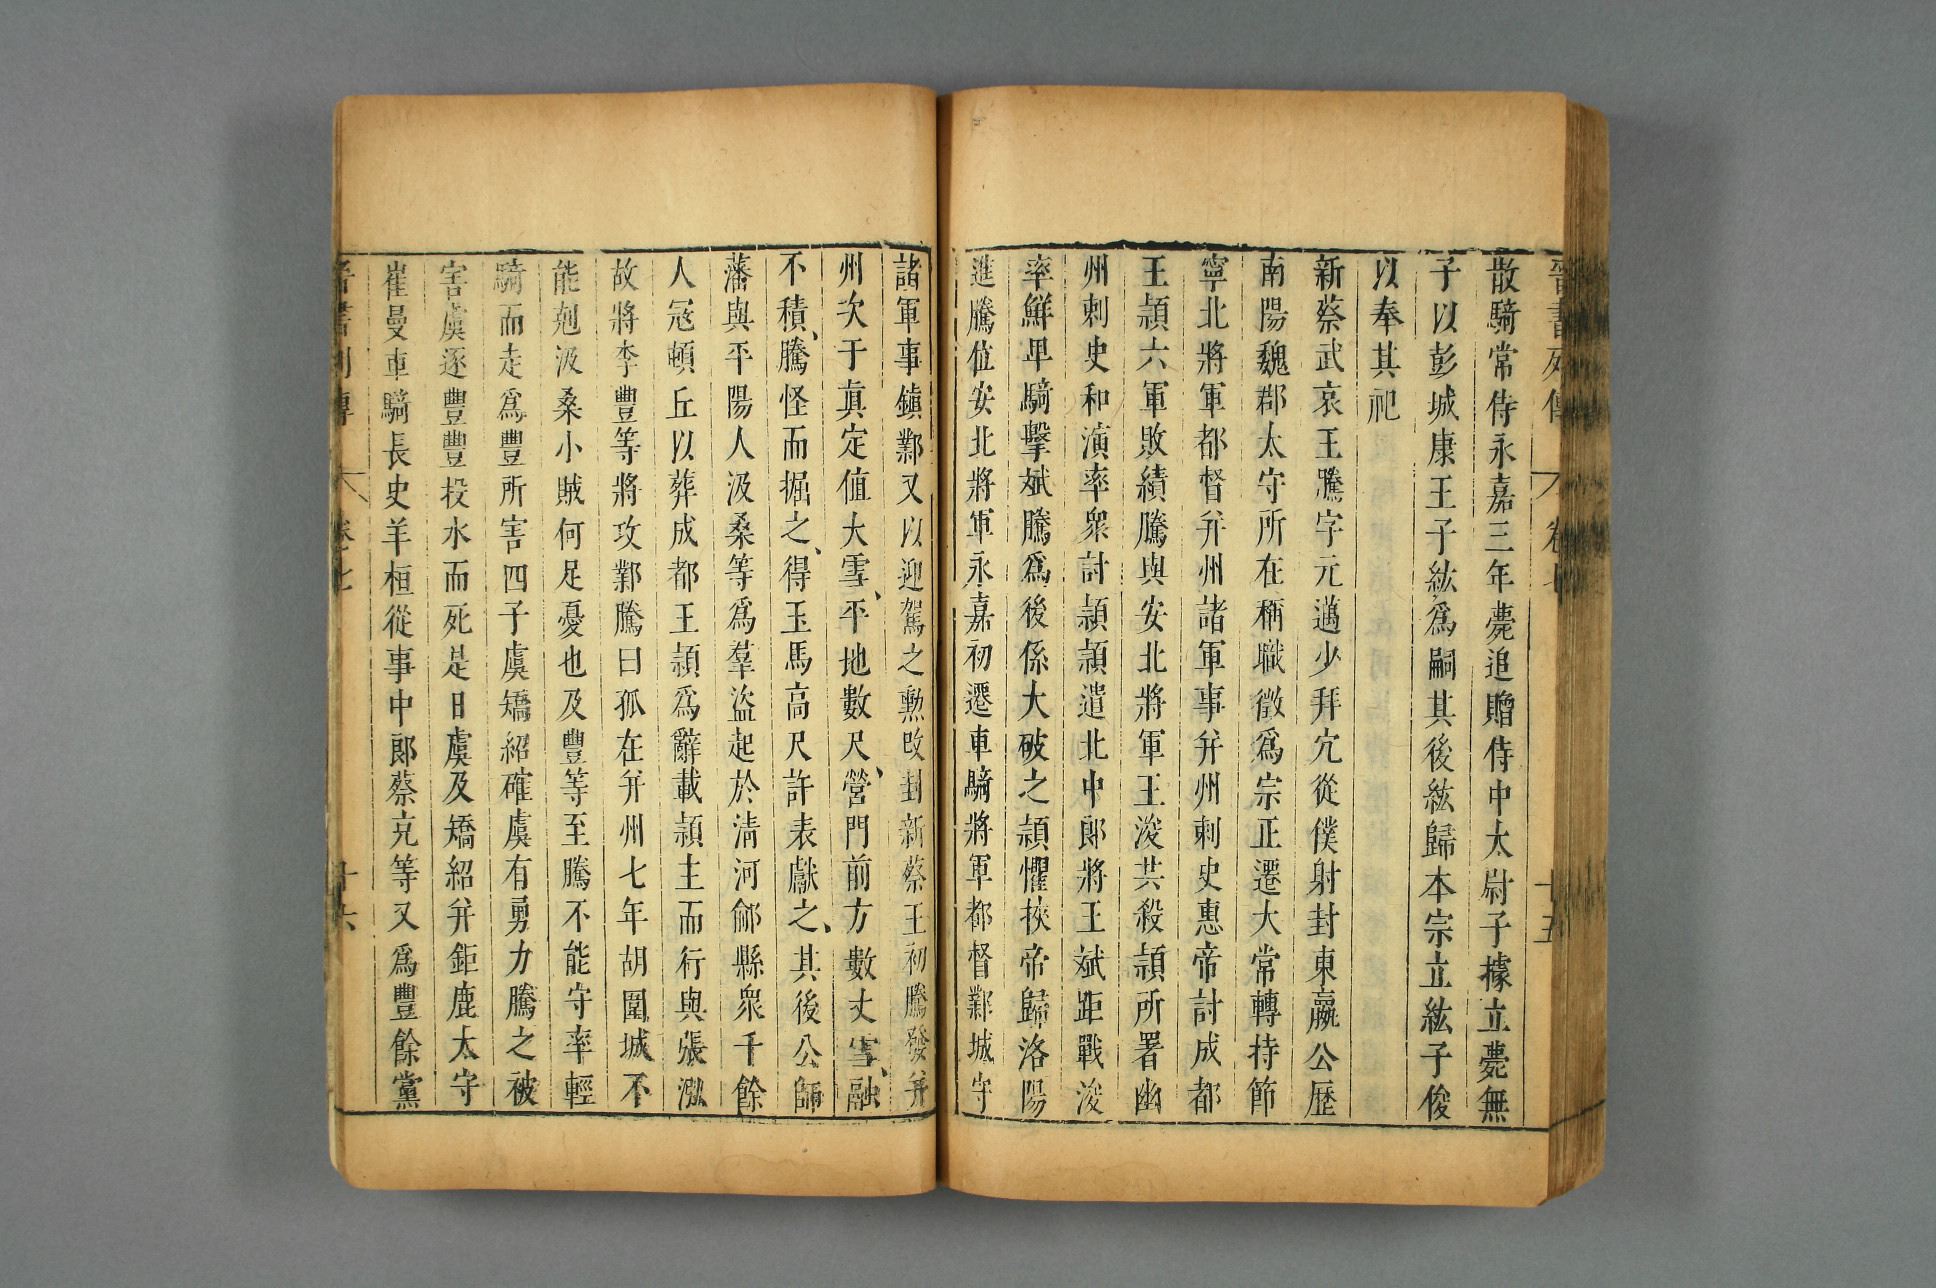 晉書列傳 卷七 十五
散騎常侍永嘉三年薨追贈侍中太尉子據立薨無
子以彭城康王子紘爲嗣其後紘歸本宗立紘子俊
以奉其祀
新蔡武哀王騰字元邁少拜宂從僕射封東嬴公歷
南陽魏郡太守所在稱職徵爲宗正遷太常轉持節
寧北將軍都督幷州諸軍事幷州刺史惠帝討成都
王穎六軍敗績騰與安北將軍王浚共殺穎所署幽
州刺史和演率衆討穎穎遣北中郎將王斌距戰浚
率鮮卑騎擊斌騰爲後係大破之穎懼挾帝歸洛陽
進騰位安北將軍永嘉初遷車騎將軍都督鄴城守
諸軍事鎮鄴又以迎駕之勲改封新蔡王初騰發幷
州次于真定値大雪、平地數尺、營門前方數丈雪、融
不積、騰怪而掘之、得玉馬高尺許表獻之、其後公師
藩與平陽人汲桑等爲羣盜起於清河鄃縣衆千餘
人宼頓丘以葬成都王穎爲辭載穎主而行與張泓
故將李豐等將攻鄴騰曰孤在幷州七年胡圍城不
能剋汲桑小賊何足憂也及豐等至騰不能守率輕
騎而走爲豐所害四子虞矯紹確虞有勇力騰之被
害虞逐豐豐投水而死是日虞及矯紹幷鉅鹿太守
崔曼車騎長史羊桓從事中郎蔡克等又爲豐餘黨
晉書列傳 卷七 十六